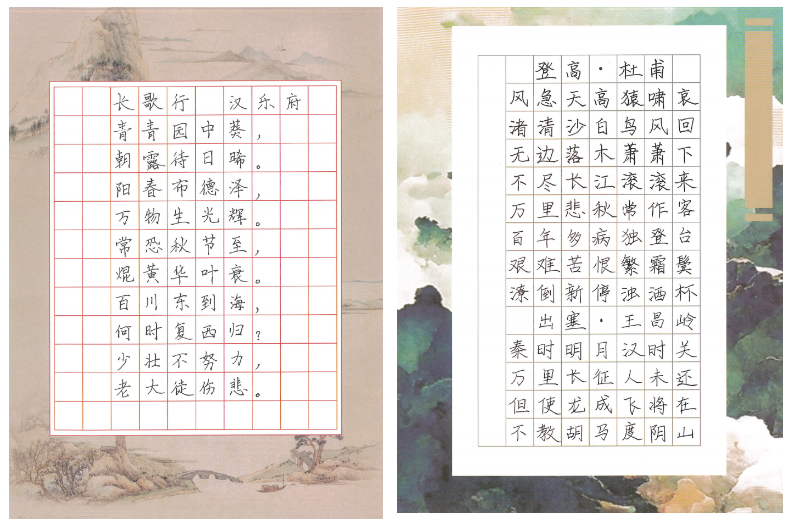 长歌行 汉乐府
青青园中葵，
朝露待日晞。
阳春布德泽，
万物生光辉。
常恐秋节至，
焜黄华叶衰。
百川东到海，
何时复西归？
少壮不努力，
老大徒伤悲。
登高·杜甫
风急天高猿啸哀
渚清沙白鸟风回
无边落木萧萧下
不尽长江滚滚来
万里悲秋常作客
百年多病独登台
艰难苦恨繁霜鬓
潦倒新停浊洒杯
出塞·王昌岭
秦时明月汉时关
万里长征人未还
但使龙成飞将在
不教胡马度阴山